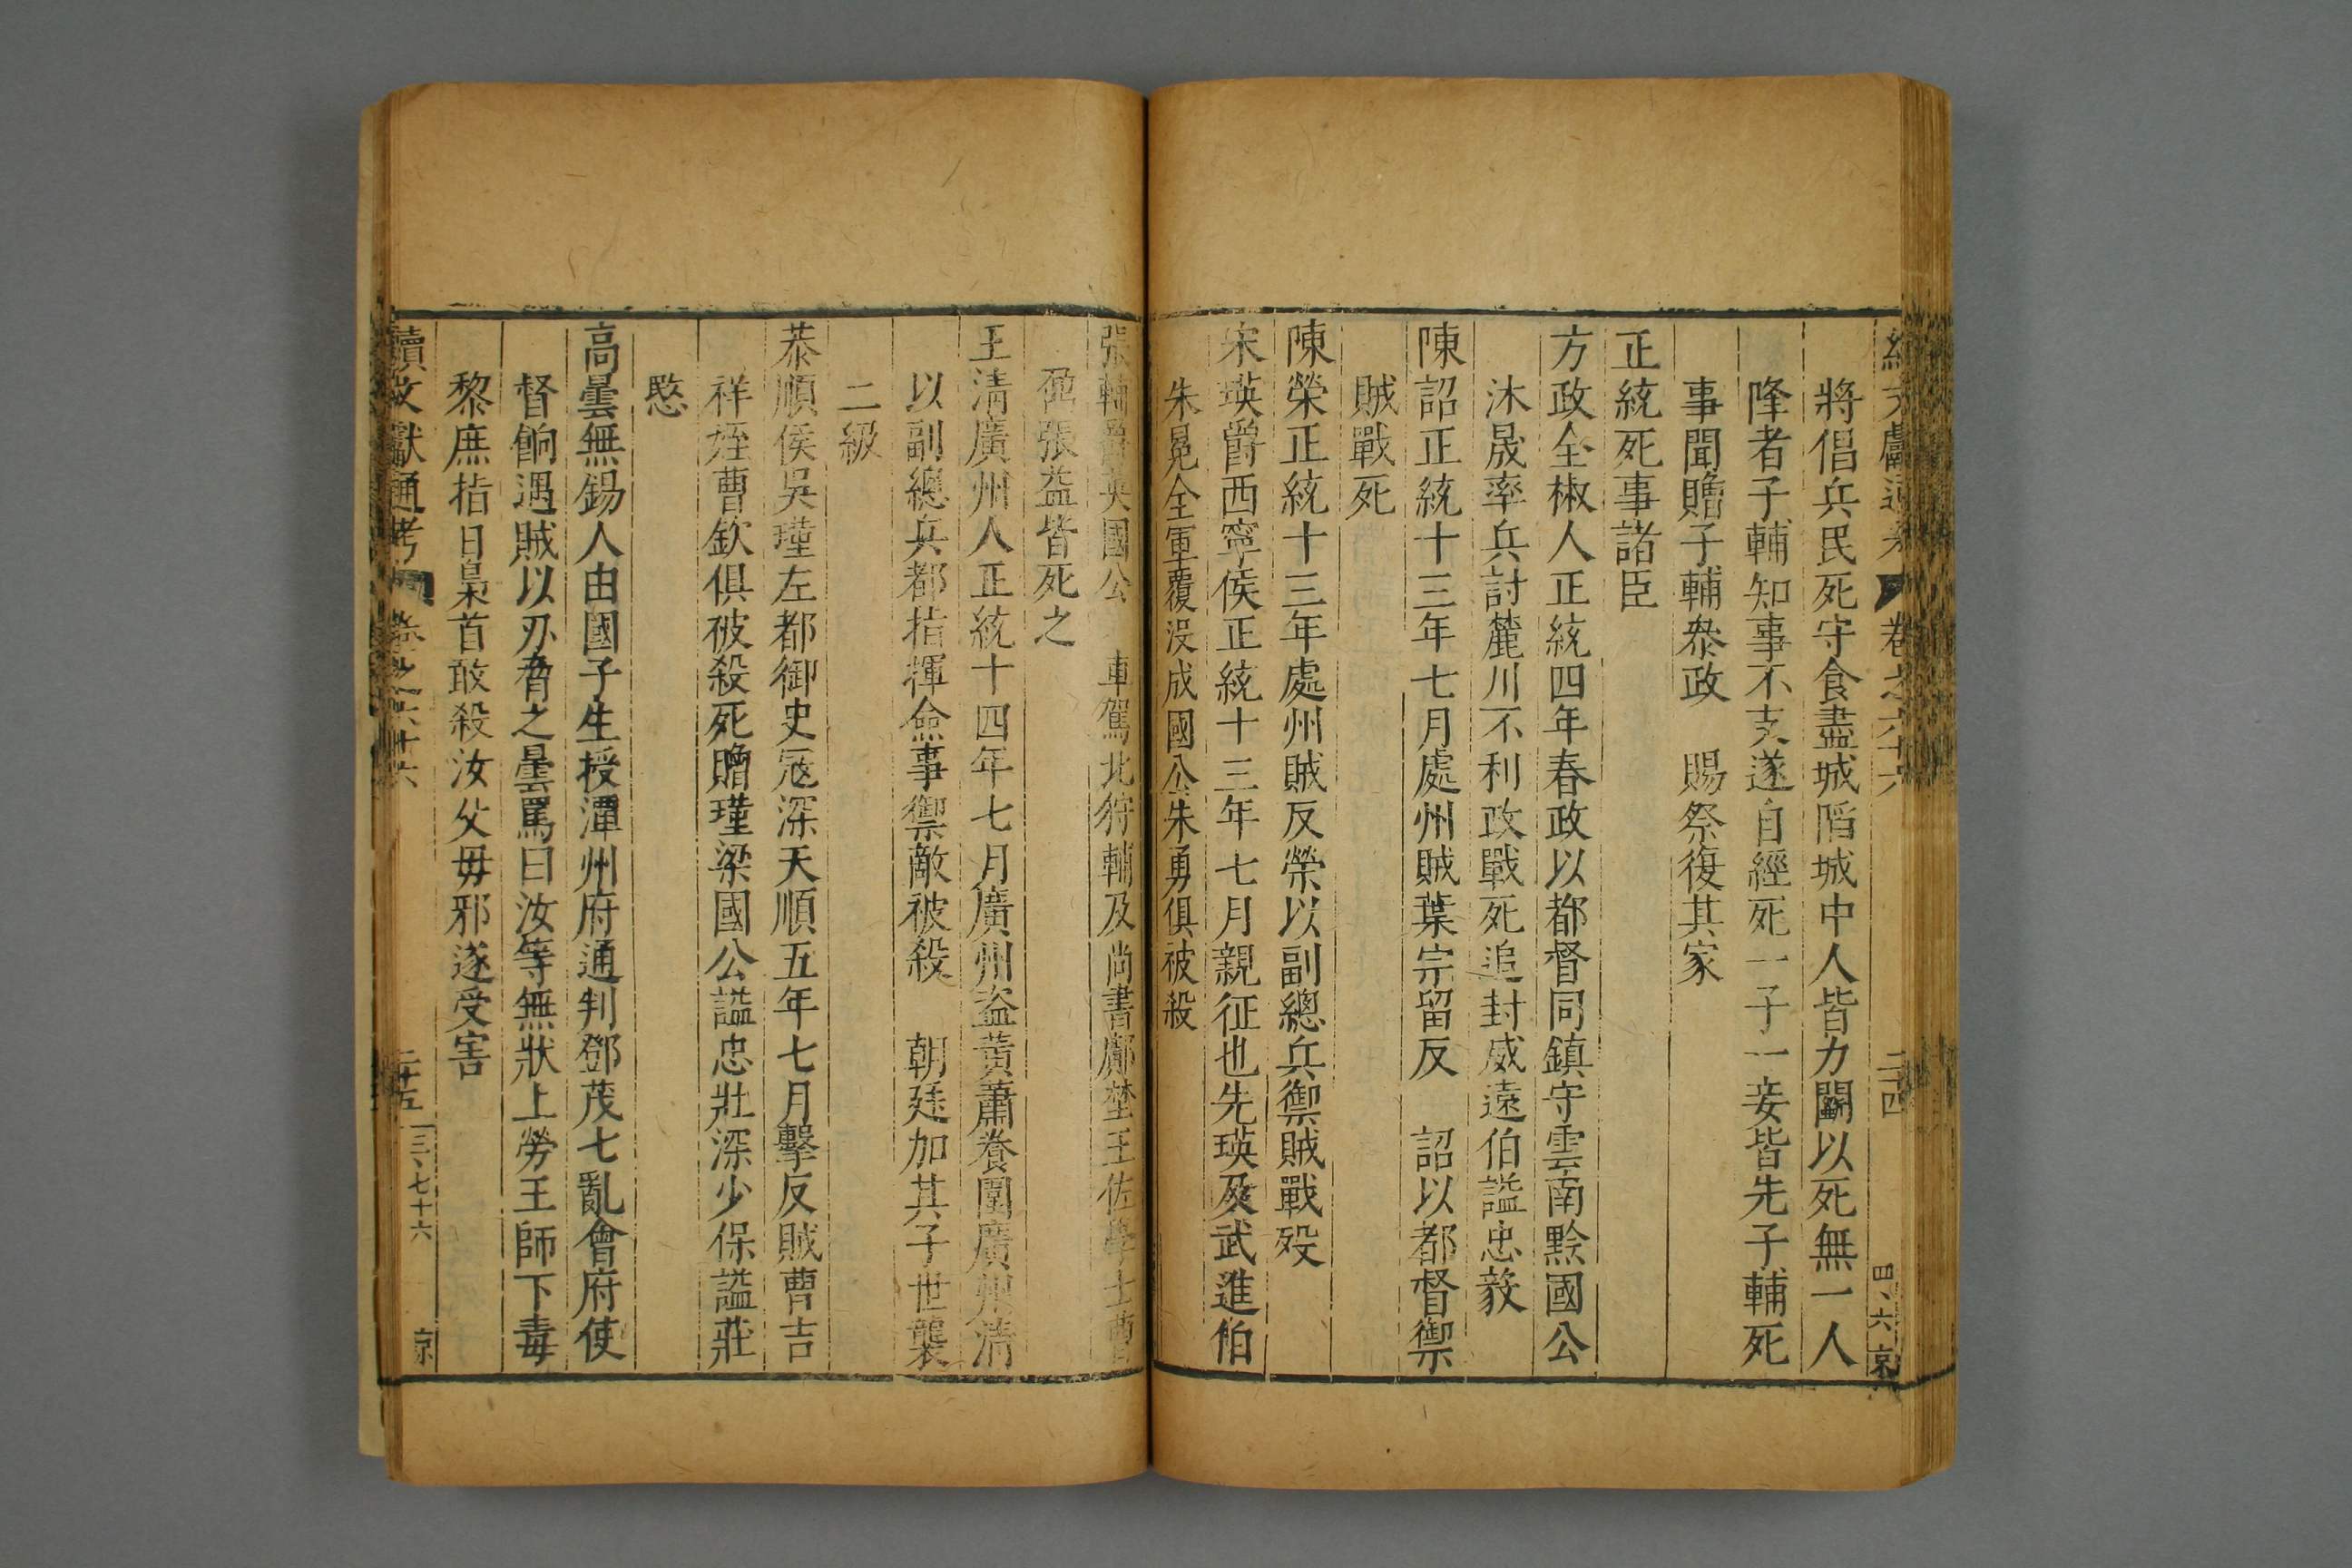 續文獻通考 卷之六十六 二十四 四、六 京
將倡兵民死守食盡城陷城中人皆力鬭以死無一人
降者子輔知事不支遂自經死一子一妾皆先子輔死
事聞贈子輔叅政 賜祭復其家
正統死事諸臣
方政全椒人正統四年春政以都督同鎮守雲南黔國公
沐晟率兵討麓川不利政戰死追封威遠伯謚忠毅
陳詔正統十三年七月處州賊葉宗留反 詔以都督禦
賊戰死
陳榮正統十三年處州賊反榮以副總兵禦賊戰歿
宋瑛爵西寧侯正統十三年七月親征也先瑛及武進伯
朱冕全軍覆沒成國公朱勇俱被殺
張輔爵英國公 車駕北狩輔及尚書鄺埜王佐學士曹
鼐張益皆死之
王清廣州人正統十四年七月廣州盜黃蕭養圍廣州清
以副總兵都指揮僉事禦敵被殺 朝廷加其子世襲
二級
恭順侯吳瑾左都御史冦深天順五年七月擊反賊曹吉
祥姪曹欽俱被殺死贈瑾梁國公謚忠壯深少保謚莊
愍
高曇無錫人由國子生授潭州府通判鄧茂七亂會府使
督餉遇賊以刃脅之曇罵曰汝等無狀上勞王師下毒
黎庶指日梟首敢殺汝父毋邪遂受害
續文獻通考 卷之六十六 二十五 三、七十六 京